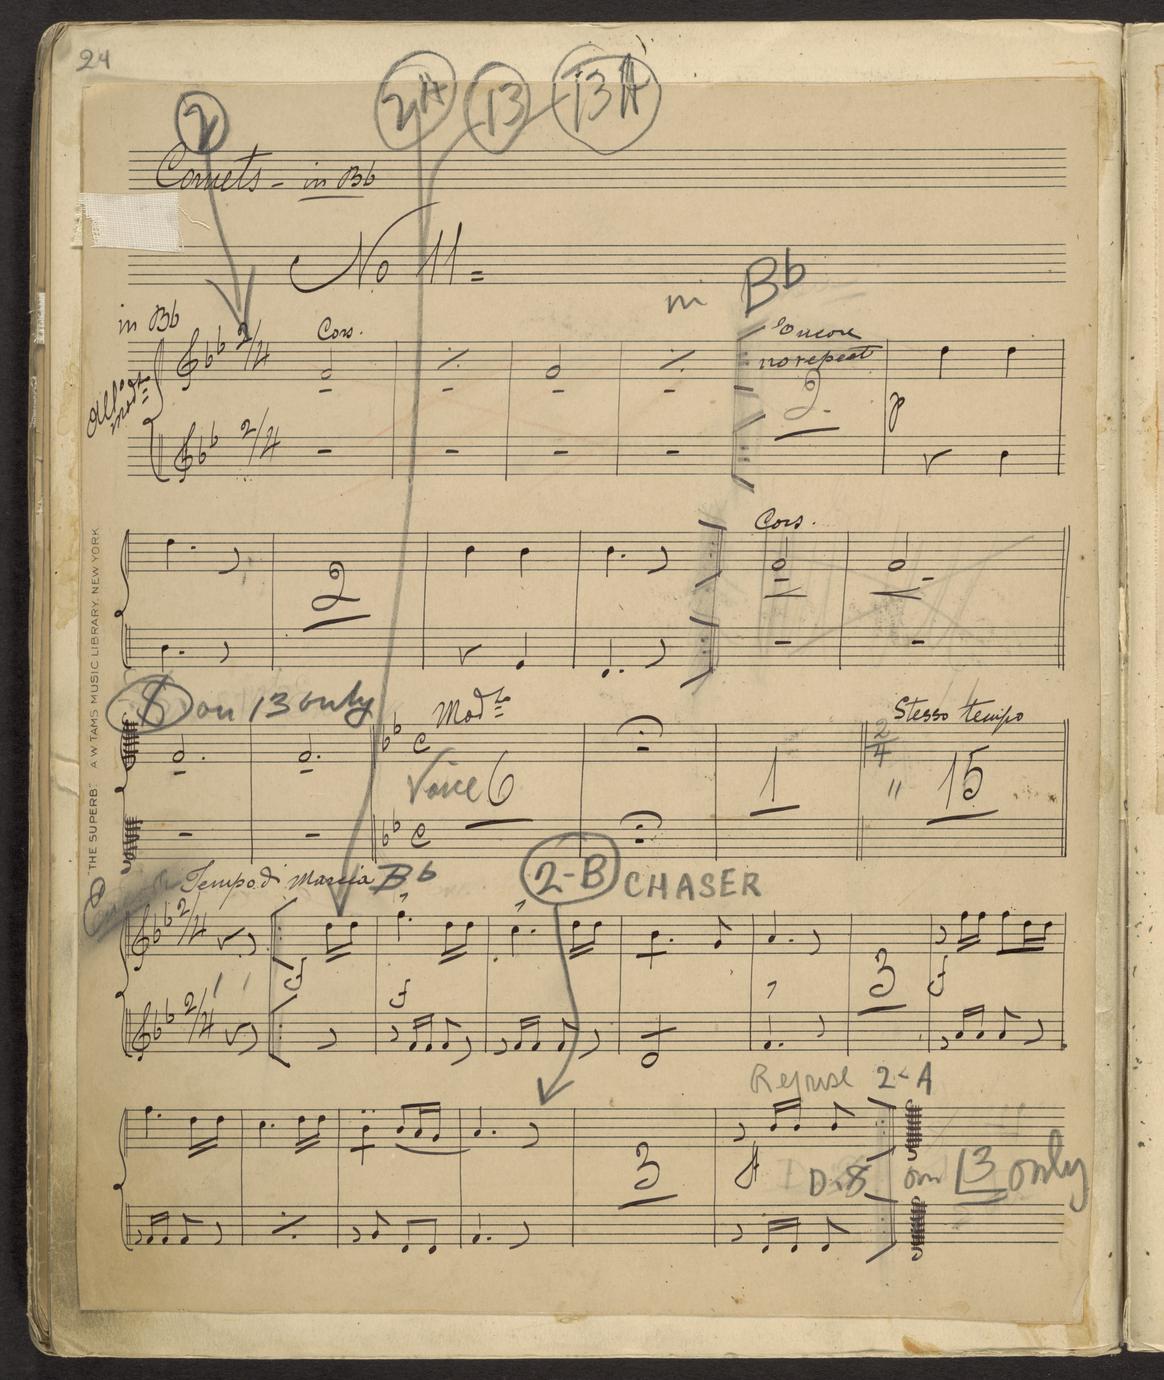 24
2 2A 13 13A
Cornets - in Bb
No 11 =
in Bb
in Bb
Cors.
Encore
no repeat
All° Modto
2/4
2
p
2/4
2
Cors.
on 13 only
Modto
Stesso tempo
C
Voice 6
1
2/4
" 15
C
THE SUPERB. A W TAMS MUSIC LIBRARY. NEW YORK
Tempo di Marcia Bb
2-B CHASER
2/4
f
f
3
f
2/4
Reprise 2-A
3
D.S on 13 only